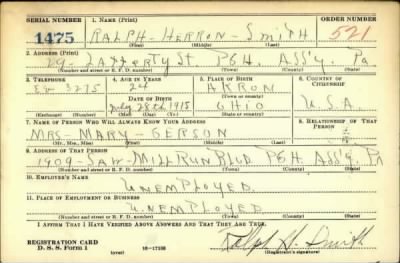 SERIAL NUMBER 1. NAME (Print) ORDER NUMBER
1475 RALPH - HERRON - SMITH 521
(First) (Middle) (Last)
2. ADDRESS (Print)
29 - LAFFERTY ST. PGH. ASS'Y. PA.
(Number and street or R. F. D. number) (Town) (County) (State)
3. TELEPHONE 4. AGE IN YEARS 5. PLACE OF BIRTH 6. COUNTRY OF CITIZENSHIP
3275 24 AKRON
DATE OF BIRTH (Town or county)
July 28th 1915 OHIO U.S.A.
(Exchange) (Number) (Mo.) (Day) (Yr.) (State or country)
7. NAME OF PERSON WHO WILL ALWAYS KNOW YOUR ADDRESS 8. RELATIONSHIP OF THAT PERSON
MRS - MARY - GERSON
(Mr., Mrs., Miss) (First) (Middle) (Last)
9. ADDRESS OF THAT PERSON
1909 - SAW - MILL RUN BLVD. PGH. ASS'Y. PA
(Number and street or R. F. D. number) (Town) (County) (State)
10. EMPLOYER'S NAME
UNEMPLOYED.
11. PLACE OF EMPLOYMENT OR BUSINESS
UNEMPLOYED.
(Number and street or R. F. D. number) (Town) (County) (State)
I AFFIRM THAT I HAVE VERIFIED ABOVE ANSWERS AND THAT THEY ARE TRUE.
REGISTRATION CARD
D. S. S. Form 1 (over) 16-17105 Ralph H. Smith
(Registrant's signature)